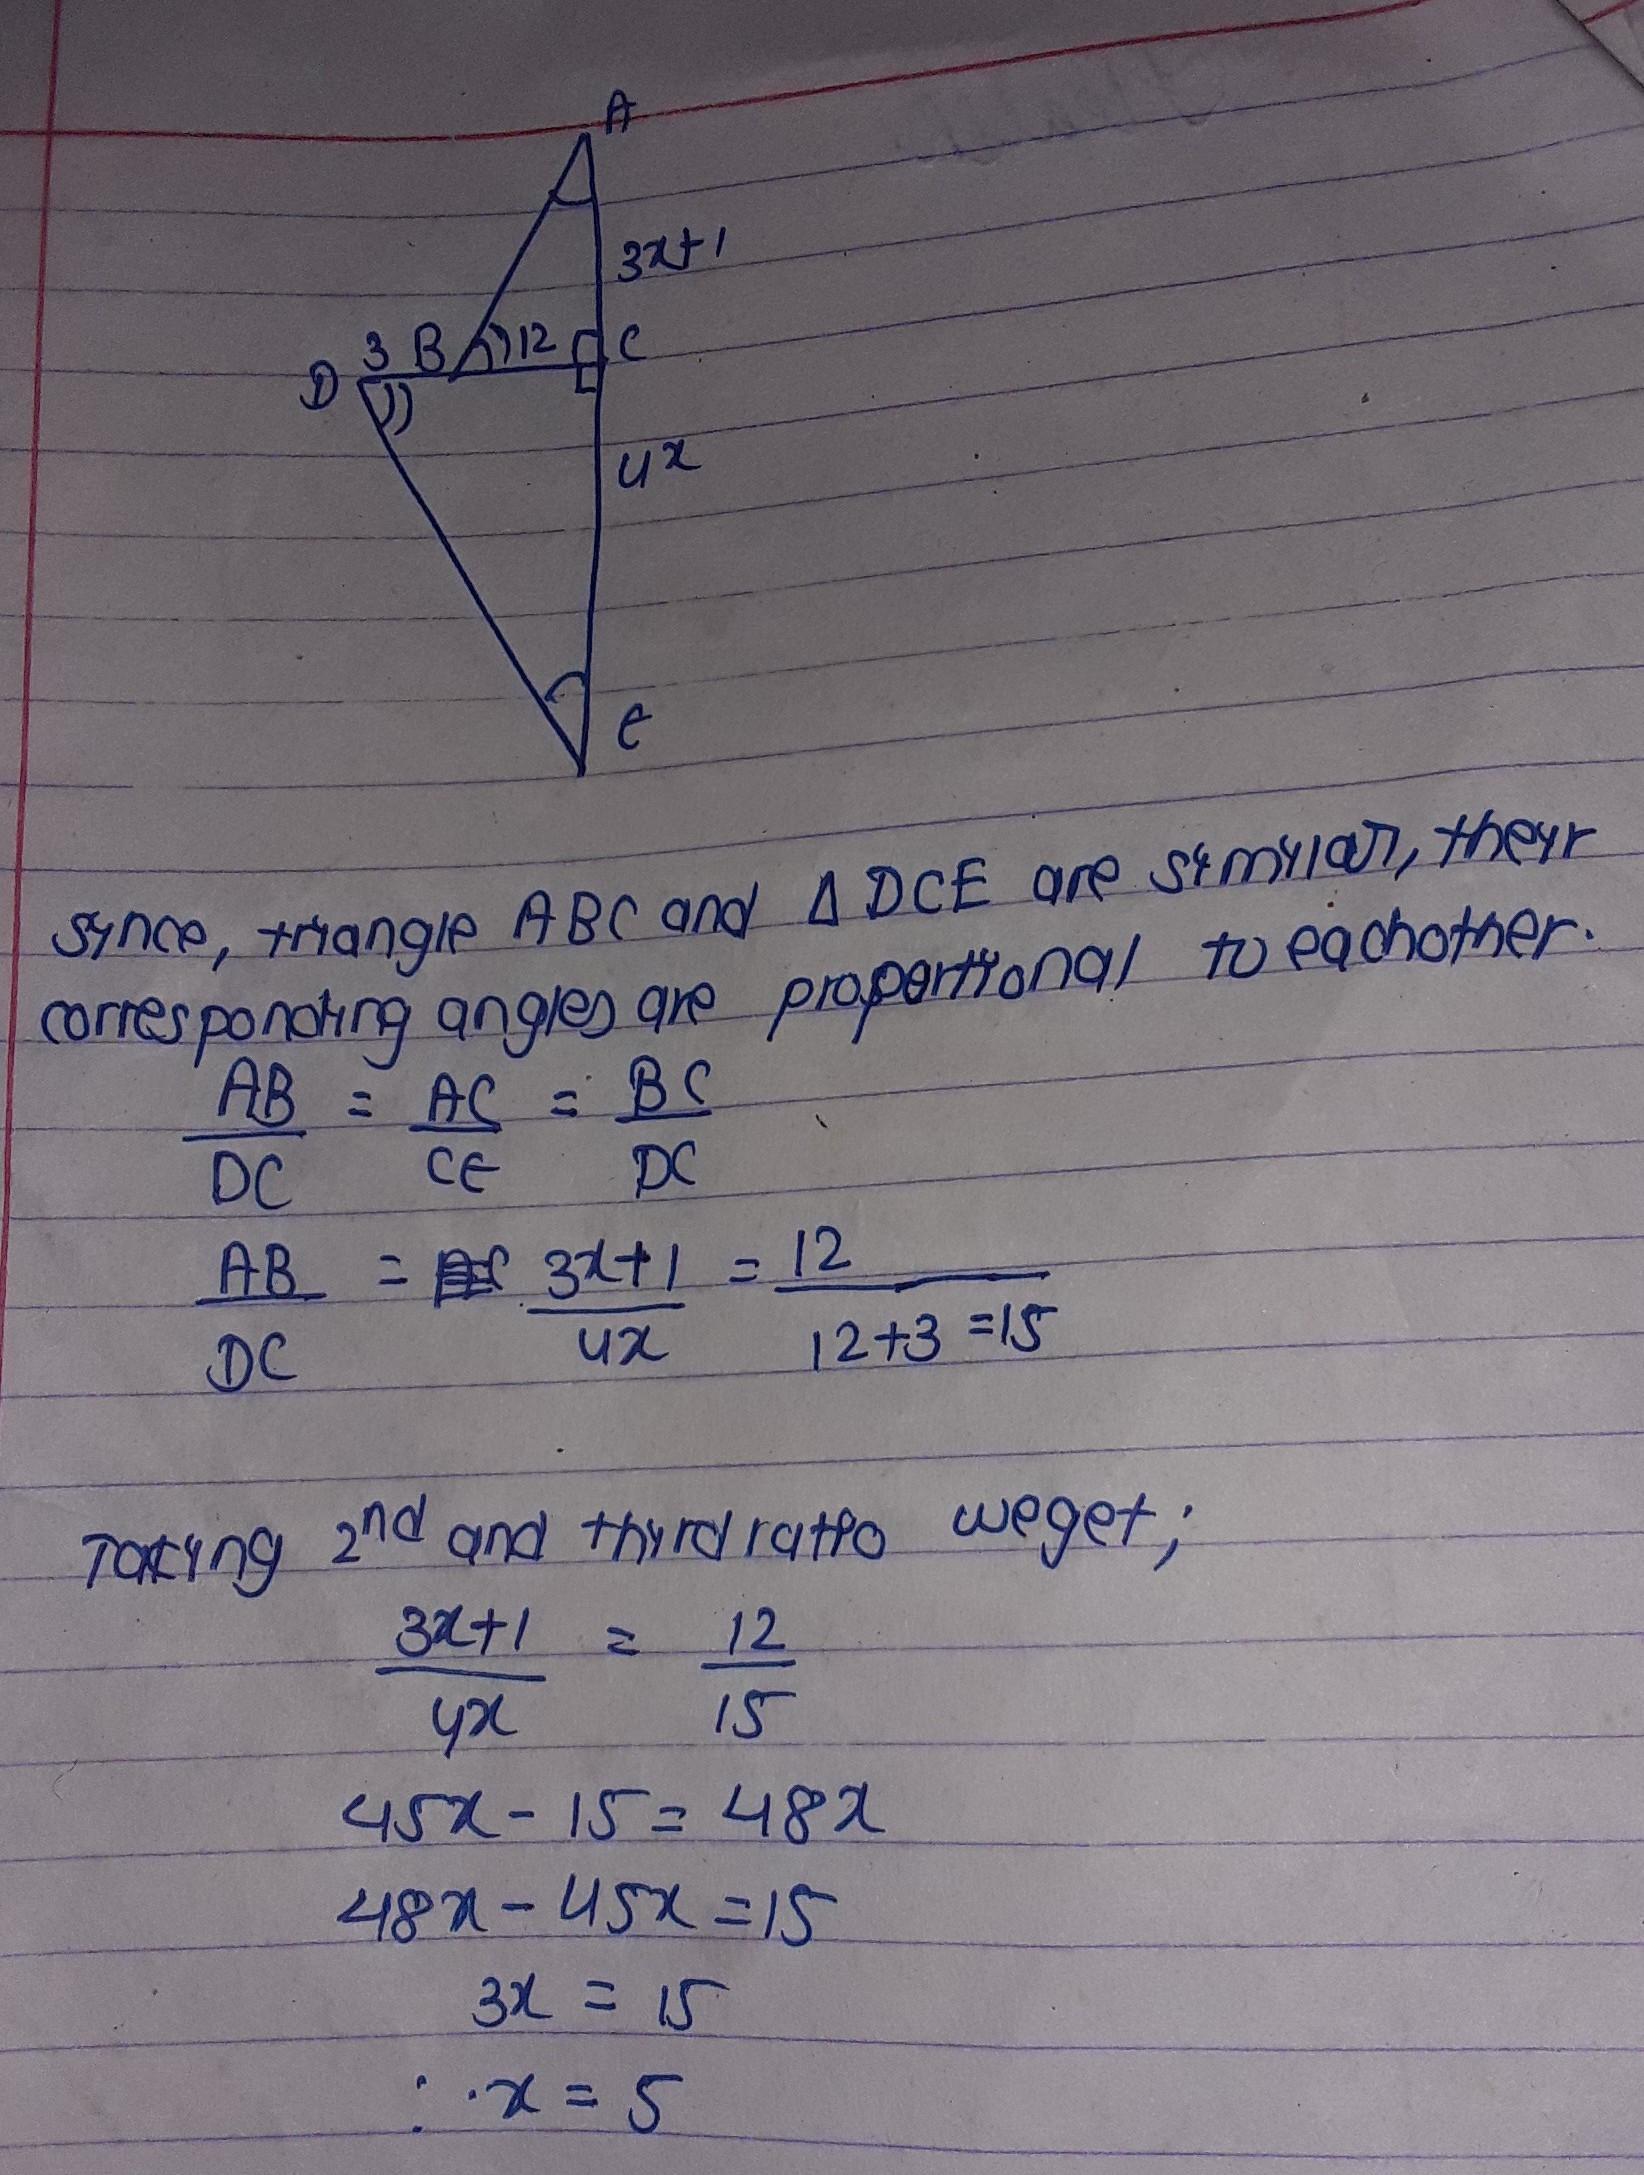 A
3x+1
D 3 B 12 C
4x
E
since, triangle ABC and Δ DCE are similar, their
corresponding angles are proportional to eachother.
AB = AC = BC
DC CE DC
AB = 3x+1 = 12
DC 4x 12+3 =15
Taking 2nd and third ratio weget;
3x+1 = 12
4x 15
45x - 15 = 48x
48x - 45x = 15
3x = 15
∴ x = 5